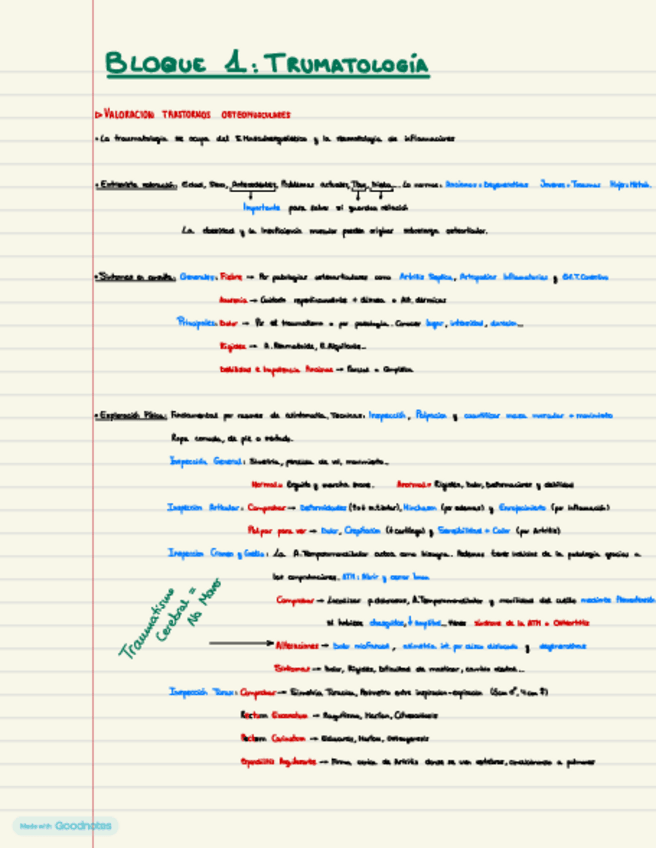 BLOQUE 1: TRUMATOLOGÍA
▷ VALORACION TRASTORNOS OSTEOMUSCULARES
• La traumatología se ocupa del S. Musculoesquelético y la reumatología de inflamaciones
• Entrevista valoración: Edad, Sexo, Antecedentes, Problemas actuales, Tto, Lo normal: Ancianos = Degenerativas Jovenes = Traumas
Importante para saber si guardan relación
La obesidad y la insuficiencia muscular pueden originar sobrecarga osteoarticular.
• Síntomas en consulta: Generales: Fiebre → Por patologías osteoarticulares como Artritis Septica, Artropatias Inflamatorias y
Anorexia → Cuidado +
Principales: Dolor → Por el traumatismo o por patología. Conocer lugar, intensidad, duracion...
Rigidez → A. Reumatoide, E. Anquilosante...
Debilidad e Impotencia Funciona → Parcial o Completa
• Exploración Física: Fundamental por examen de Tecnicas: Inspección, Palpacion y cuantificar masa muscular + movimiento
Ropa comoda, de pie o sentado.
Inspección General: Simetria, perdida de vol, movimiento...
Normal = Erguido y marcha suave. Anormal = Rigidez, Dolor, Deformaciones y debilidad
Inspección Articular: Comprobar → Deformidades Hinchazon (por edemas) y Enrojecimiento (por inflamación)
Palpar para ver → Dolor, Crepitacion (cartilago) y Sensibilidad + Calor (por Artritis)
Inspección Craneo y Cuello: La A. Temporomandibular actua como bisagra. Podemos tener indicios de la patologia gracias a
las comprobaciones. ATM: Abrir y cerrar boca
Comprobar → Localizar p. dolorosos, A. Temporomandibular y movilidad del cuello mediante
Si hubiese chasquidos, tiene sindrome de la ATM o Osteoartritis
Traumatismo
Cerebral =
No Mover
Alteraciones → Dolor miofascial, int. por disco dislocado y degenerativas
Sintomas → Dolor, Rigidez, Dificultad de masticar, cambio
Inspección Torax: Comprobar → Simetria, Perimetro entre inspiracion-espiracion
Pectum Excavatum → Raquitismo, Marfan,
Pectum Carinatum → Marfan, Osteogenesis
Espondilitis Anquilosante → Forma de Artritis donde se unen vertebras,
Made with Goodnotes